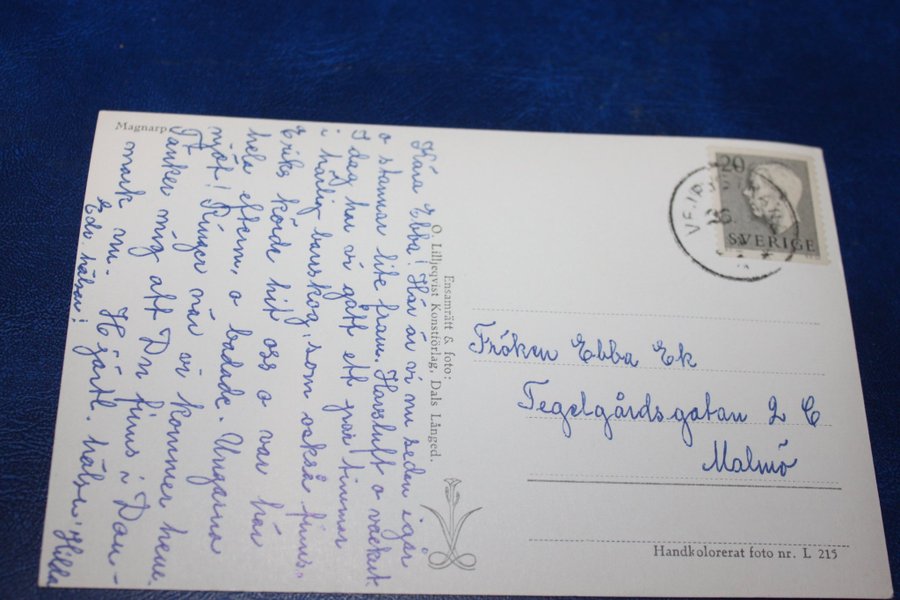 Magnarp
Kära Ebba! Här är vi nu seden igår
o stannar lite fram. Havsluft o vackert
I dag har vi gått ett par timmar
i härlig barrskog, som också finns.
Eriks körde hit oss o var här
hela efterm. o badade. Ungarna
njöt! Ringer när vi kommer hem.
Tänker mig att Du finns i Dan-
mark nu. Hjärtl. hälsn! Hilda
Edv. hälsar!
Ensamrätt & foto:
O. Lilljeqvist Konstförlag, Dals Långed.
20
SVERIGE
Fröken Ebba Ek
Tegelgårdsgatan 2 C
Malmö
Handkolorerat foto nr. L 215